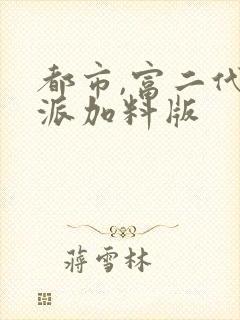 都市,富二代
派加料版
蒋雪林